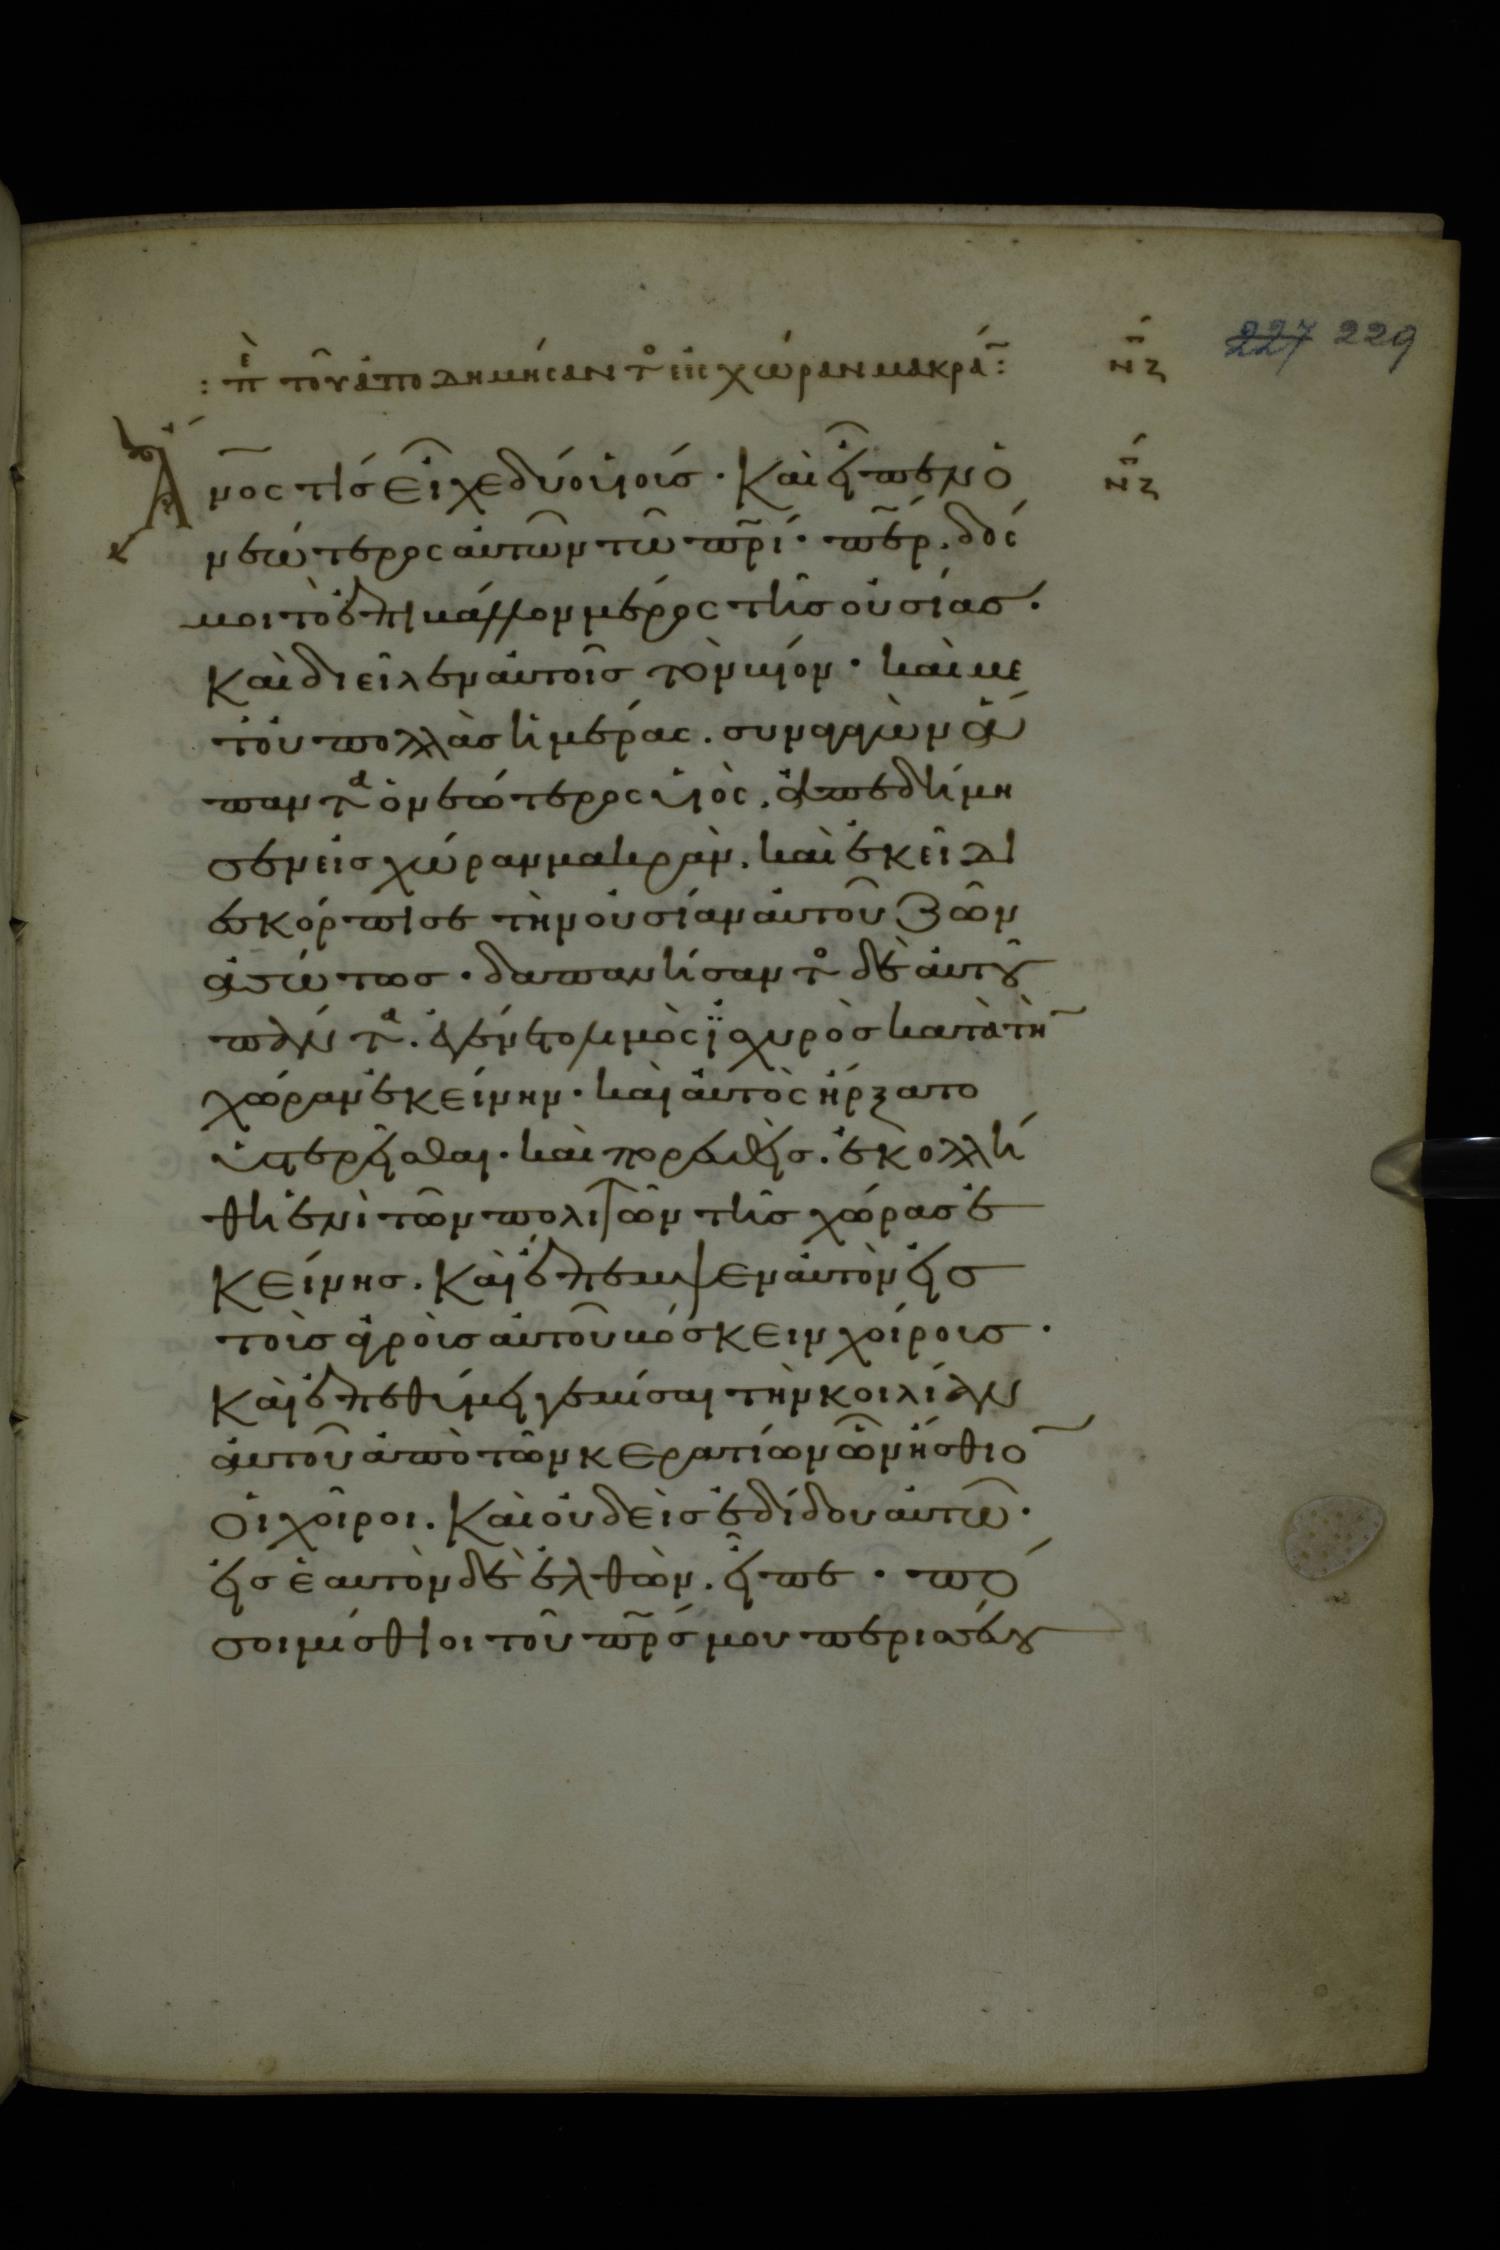 227 229
: πε τοῦ ἀποδημήσαντο εἰς χώραν μακρά: νζ
Ἄνος τίς εἶχε δύο υἱούς · Καὶ εἶπεν ὁ νζ
νεώτερος αὐτῶν τῶ πρί · περ . δός
μοι τὸ ἐπιβάλλον μέρος τῆς οὐσίας ·
Καὶ διεῖλεν αὐτοῖς τὸν βίον · καὶ με
τ' οὐ πολλὰς ἡμέρας . συναγαγὼν ἅ
παντα ὁ νεώτερος υἱὸς , ἀπεδήμη
σεν εἰς χώραν μακρὰν , καὶ ἐκεῖ δι
εσκόρπισε τὴν οὐσίαν αὐτοῦ ζῶν
ἀσώτως · δαπανήσαντο δὲ αὐτοῦ
πάντα . ἐγένετο λιμὸς ἰσχυρὸς κατὰ τὴ
χώραν ἐκείνην · καὶ αὐτὸς ἤρξατο
ὑστερεῖσθαι · καὶ πορευθεὶς . ἐκολλή
θη ἑνὶ τῶν πολιτῶν τῆς χώρας ἐ
κείνης . Καὶ ἔπεμψεν αὐτὸν εἰς
τοὺς ἀγροὺς αὐτοῦ βόσκειν χοίρους ·
Καὶ ἐπεθύμει γεμίσαι τὴν κοιλίαν
αὐτοῦ ἀπὸ τῶν κερατίων ὧν ἤσθιο
οἱ χοῖροι . Καὶ οὐδεὶς ἐδίδου αὐτῶ ·
εἰς ἑαυτὸν δὲ ἐλθὼν . εἶπε · πό
σοι μίσθιοι τοῦ πρς μου περισσεύου